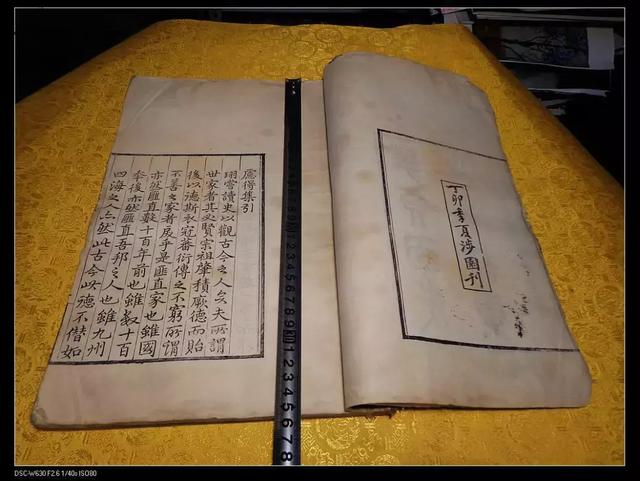 丁卯秊夏涉園刊
得集引
嘗讀史以觀古今之人矣夫所謂
世家者其必賢宗祖肇積厥德而貽
後以德斯衣冠蕃衍傳之不窮所謂
不善之家者反乎是匪直家也雖國
亦然匪直數十百年前也雖數十百
秊後亦然匪直吾邦之人也雖九州
四海之人亦然此古今以德不僣如
1 2 3 4 5 6 7 8 9
1 2 3 4 5 6 7 8
DSC-W630 F2.6 1/40s ISO80